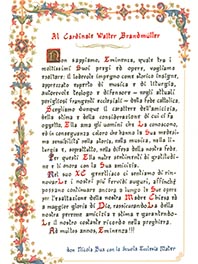 Al Cardinale Walter Brandmuller
Non sappiamo, Eminenza, quale tra i
moltissimi Suoi pregi ed opere, vogliamo
esaltare: il lodevole impegno come storico insigne,
apprezzato esperto di musica e di liturgia,
autorevole teologo e difensore – negli attuali
perigliosi frangenti ecclesiali – della fede cattolica.
Scegliamo dunque il carattere dell'amicizia,
della stima e della considerazione di cui fa
oggetto, Ella ama gli uomini che La conoscono,
ed in conseguenza coloro che hanno la Sua medesi-
ma sensibilità nella storia, nella musica, nella li-
turgia e, soprattutto, nella difesa della nostra fede.
Per questi Ella nutre sentimenti di gratitudi-
ne e li onora con la Sua amicizia.
Nel suo XC genetliaco ci sentiamo di rin-
novarLe i nostri più fervidi auguri, affinché
possano continuare ancora a lungo le Sue opere
per l'esaltazione della nostra Mater Chiesa ed
a maggior gloria di Dio, rassicurandoLa della
nostra perenne amicizia e stima e garantendo-
Le il nostro costante ricordo nella preghiera.
Ad multos annos, Eminenza!!!
don Nicola Bux con la Scuola Ecclesia Mater